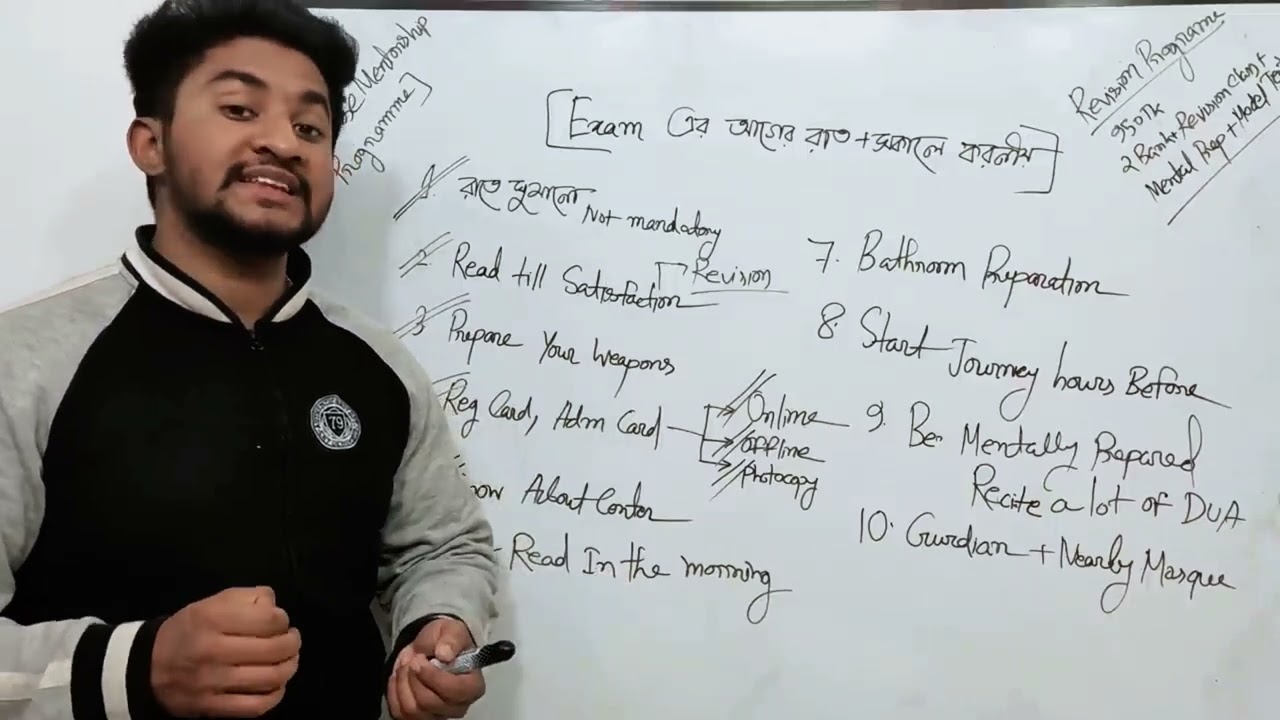 se Mentorship
Programme]
[Exam এর আগের রাত + সকালে করনীয়]
Revision Programe
950Tk
2 Bank + Revision Class +
Mental Prep + Model Tes
1. রাতে ঘুমানো Not mandadory
2. Read till Satisfaction → Revision
3. Prepare Your Weapons
Reg Card, Adm Card → Online
→ Offline
→ Photocopy
now About Center
Read In the morning
7. Bathroom Preparation
8. Start Journey hours Before
9. Be Mentally Prepared
Recite a lot of DUA
10. Gurdian + Nearby Masque
79